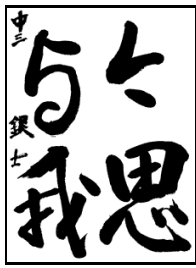 今思
与我
中三 銀士